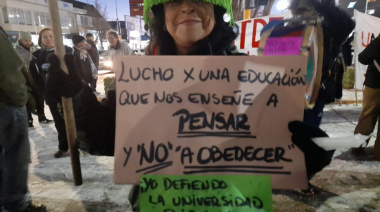 LUCHO X UNA EDUCACIÓN
QUE NOS ENSEÑE A
PENSAR
Y "NO" "A OBEDECER"
YO DEFIENDO
LA UNIVERSIDAD